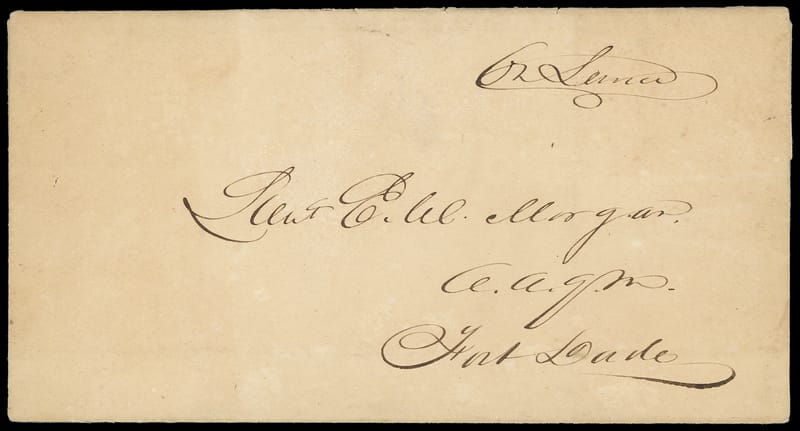 On Service
Lieut E. W. Morgan.
A. A. Q. M.
Fort Dade